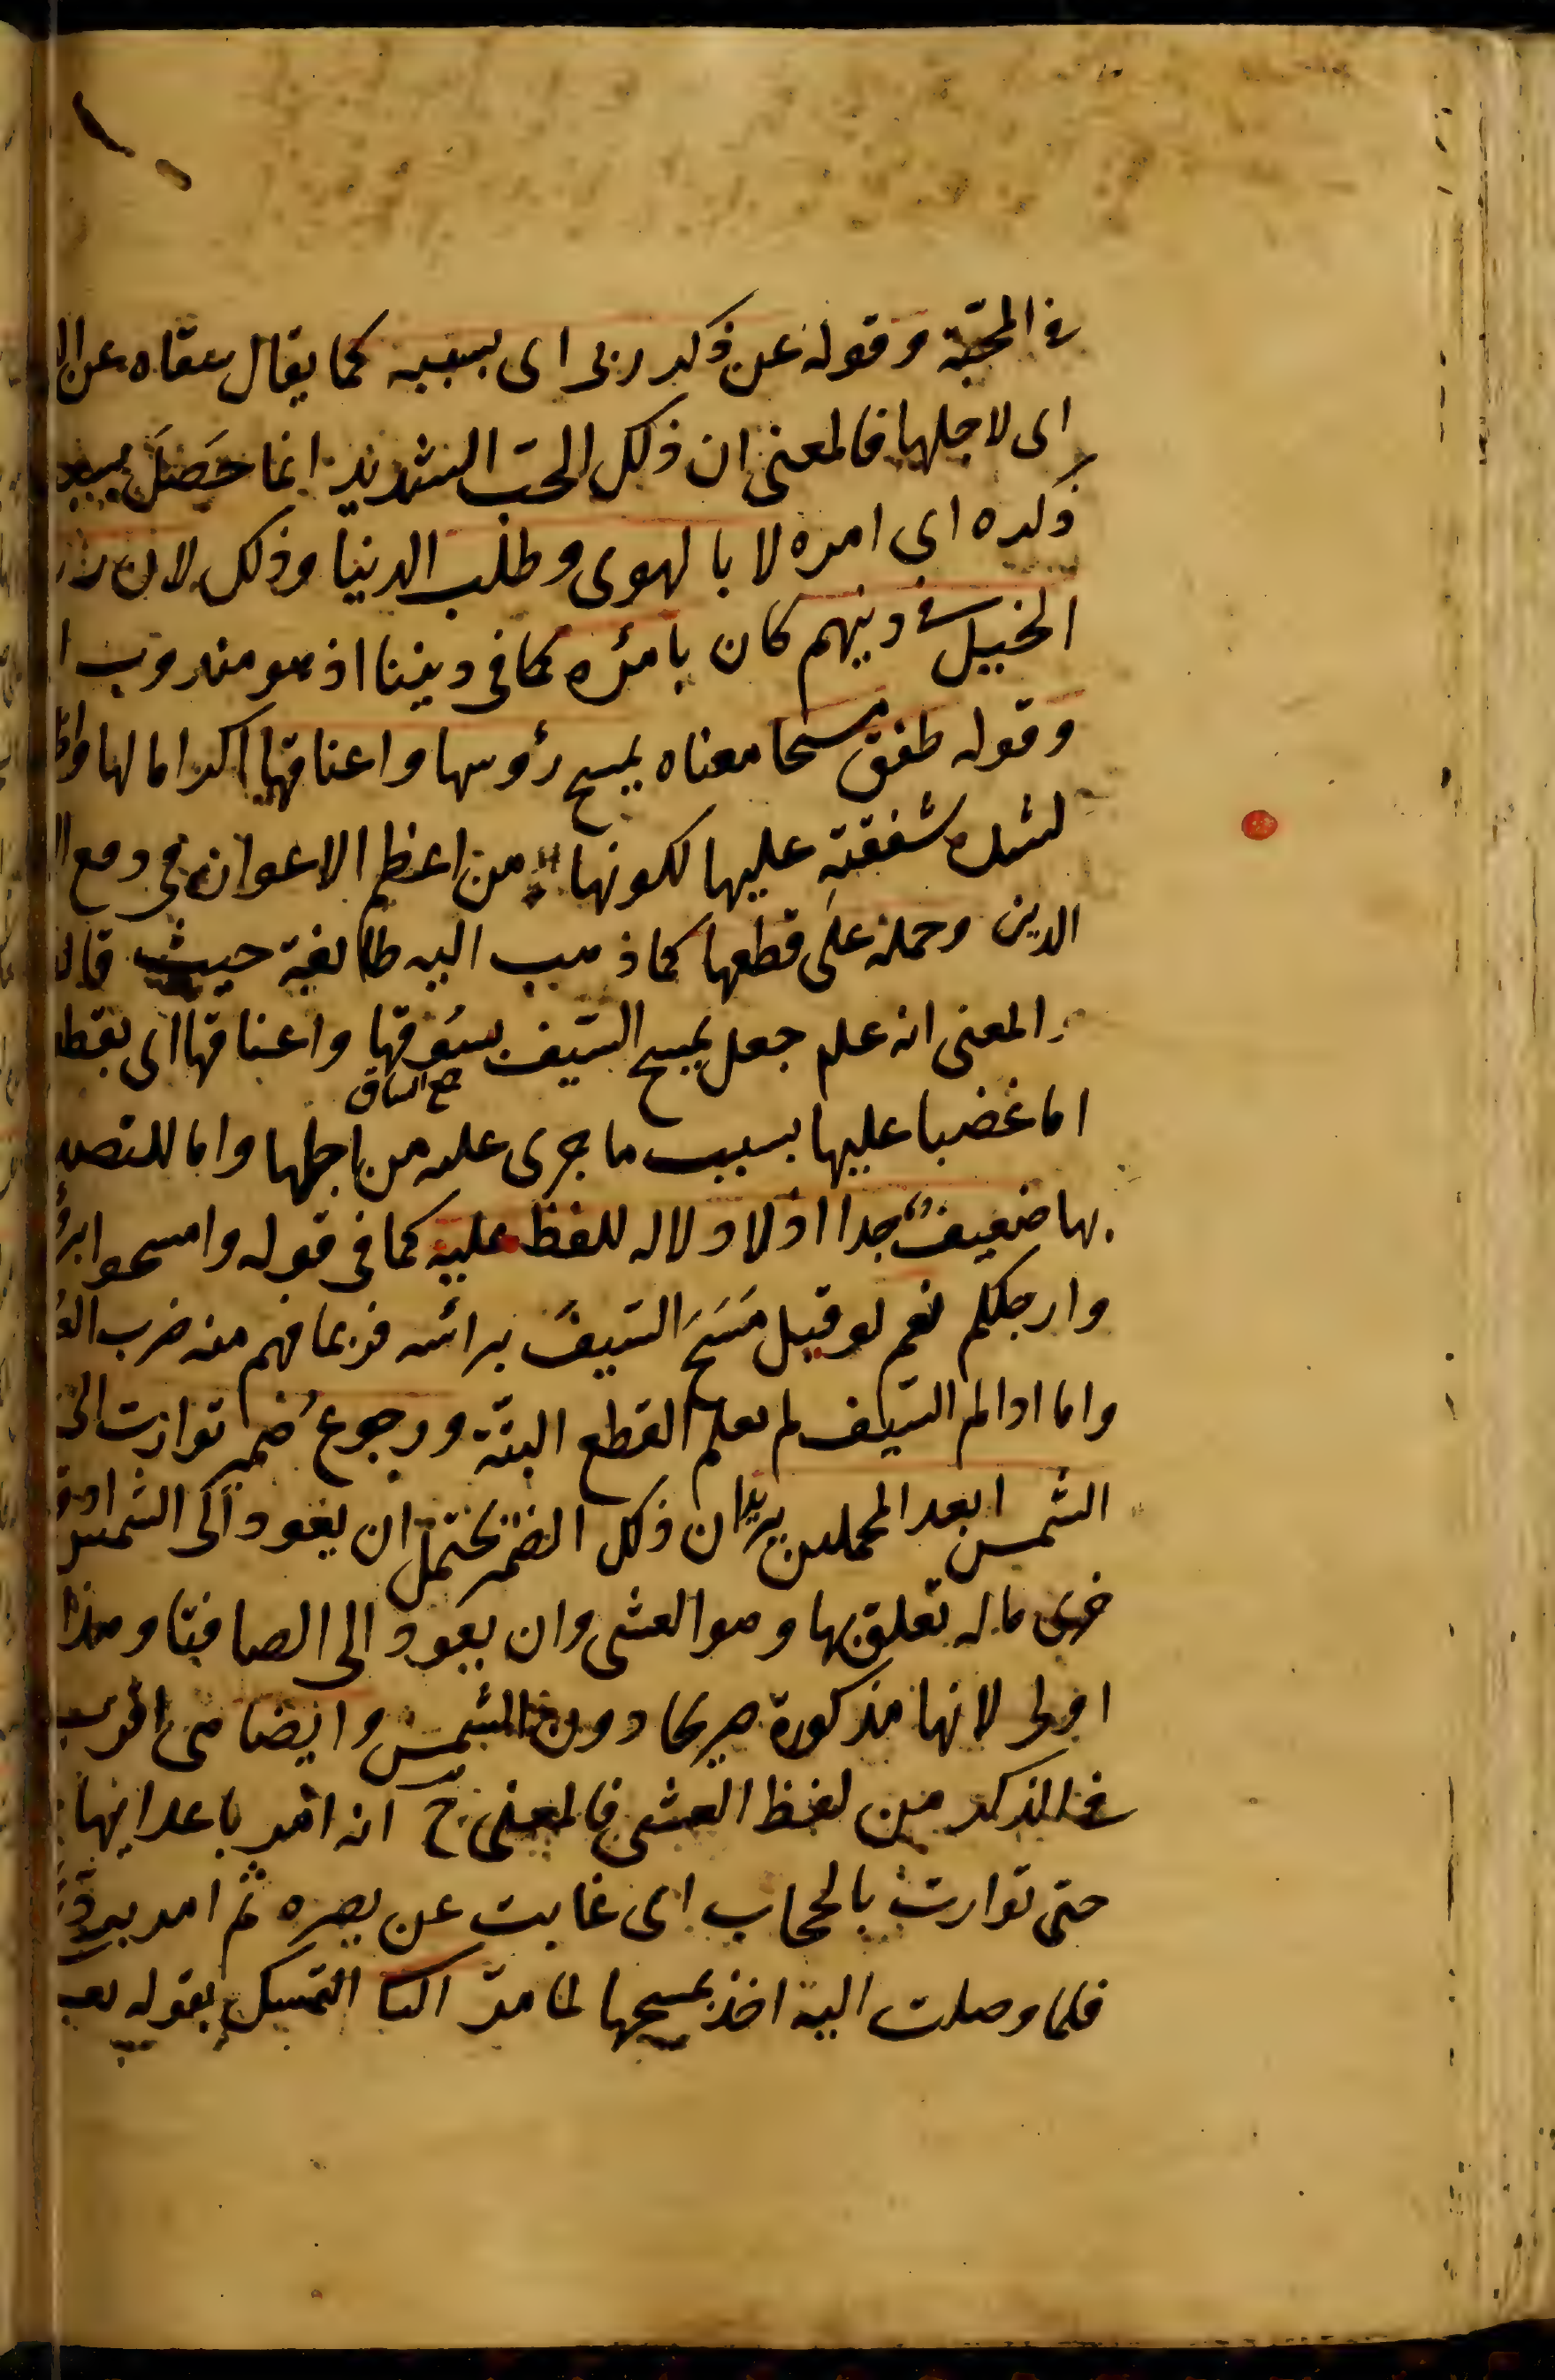 في المحبّة وقوله عن ذكر ربى اى بسببه كما يقال سقاه عن
اى لاجلها فالمعنى ان ذلك الحبّ الشديد انما حَصَلَ
ذكره اى امره لا بالهوى وطلب الدنيا وذلك لان
الخيل في دينهم كان بامره كما فى ديننا اذ هو مندوب
وقوله طفق مسحا معناه يمسح رؤسها واعناقها اكراما لها
لشدة شفقته عليها لكونها من اعظم الاعوان فى دفع
الدين وحمله على قطعها كما ذهب اليه طائفة حيث
والمعنى انه علم جعل يمسح السّيف بسُوقها واعناقها اى
جمع الساق
اما غضبا عليها بسبب ما جرى عليه من اجلها واما
بها ضعيفٌ جدا اذ لا دلاله للفظ عليه كما فى قوله وامسحوا
وارجلكم نعم لو قيل مَسَحَ السّيفَ برأسه فربما فهم منه ضرب
واما اذا لم السّيف لم يعلم القطع البتّة ورجوع ضمير توارت الى
الشمس ابعد المحملين يريد ان ذلك الضمير يحتمل ان يعود الى الشمس
جرى ما له تعلق بها وهو العشى وان يعود الى الصافنا وهذا
اولى لانها مذكورة صريحا دون الشمس وايضا هى اقرب
فى الذكر من لفظ العشى فالمعنى ح انه امر باعدائها
حتى توارت بالحجاب اى غابت عن بصره ثم امر
فلما وصلت اليه اخذ يمسحها لما مرّ التمسك بقوله